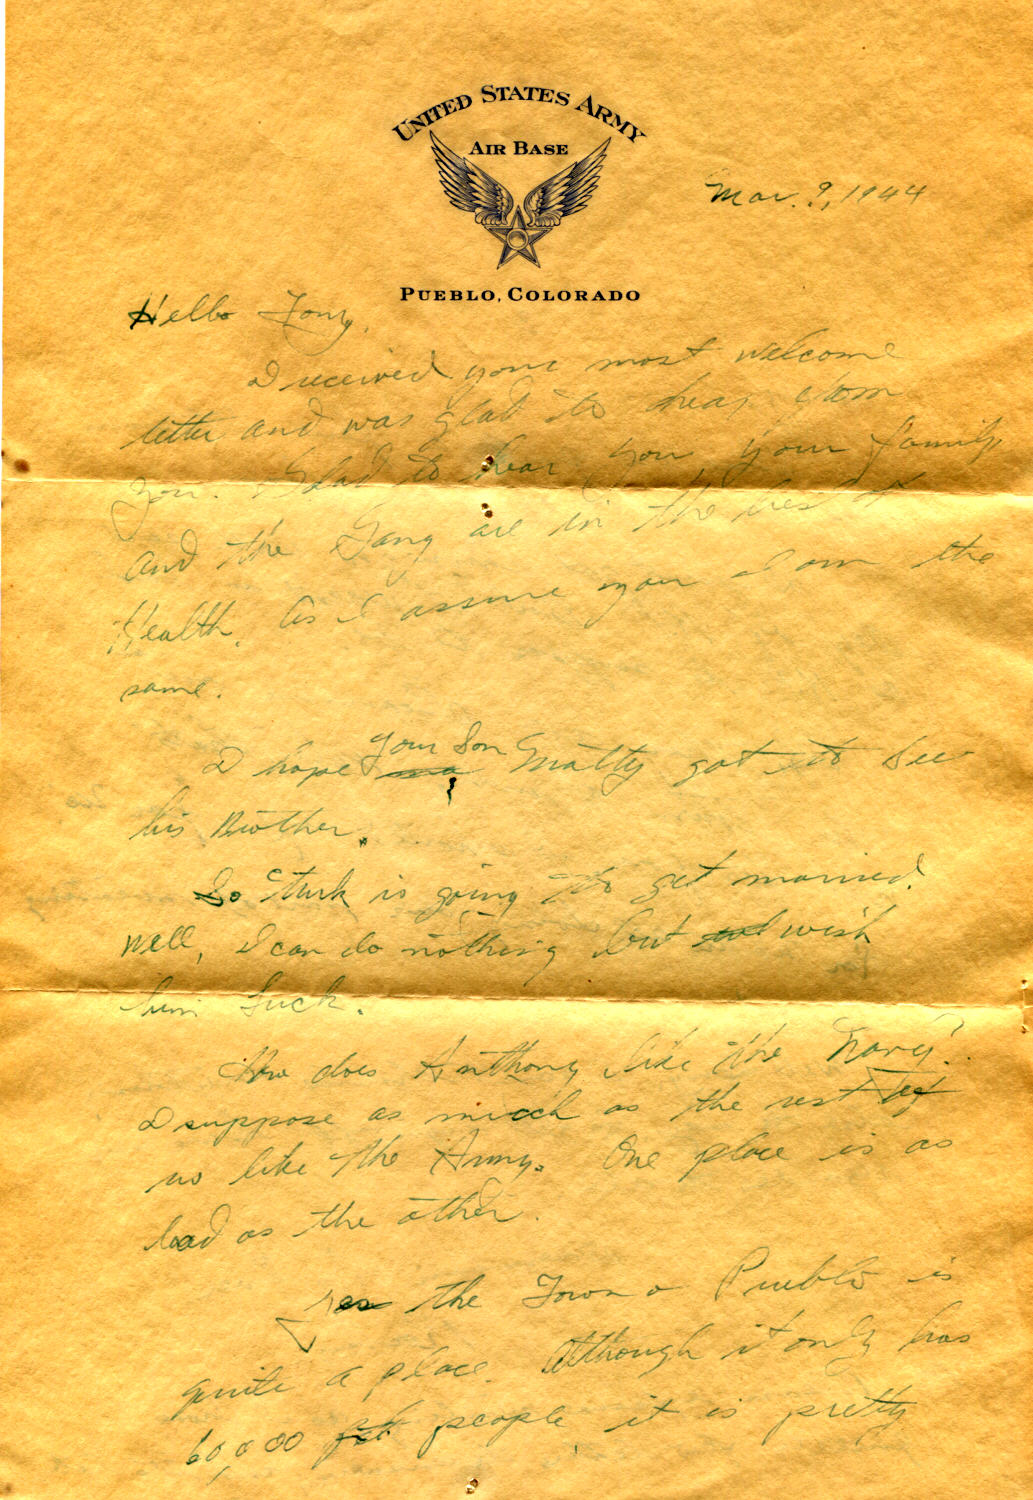 UNITED STATES ARMY
AIR BASE
PUEBLO, COLORADO
Mar. 9, 1944
Hello Tony,
I received your most welcome
letter and was glad to hear from
you. Glad to hear you your family
and the Gang are in the best of
Health. As I assure you I am the
same.
I hope your Son Matty got to see
his Brother.
So Turk is going to get married.
Well, I can do nothing but wish
him Luck.
How does Anthony like the Navy?
I suppose as much as the rest of
us like the Army. One place is as
bad as the other.
Yes the Town o Pueblo is
quite a place. Although it only has
60,000 people it is pretty